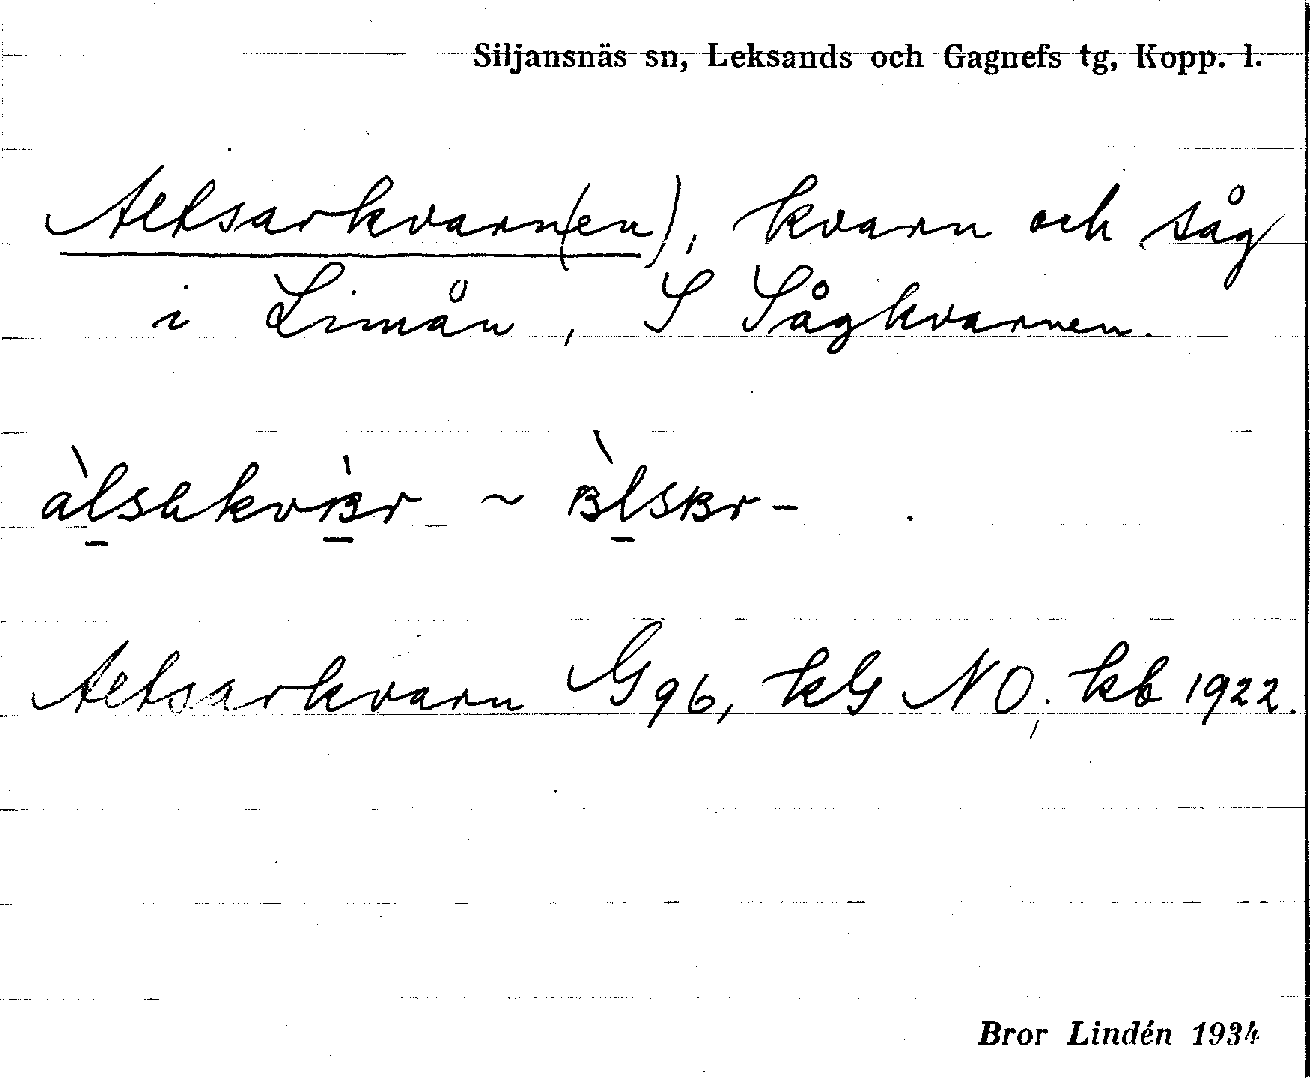 Siljansnäs sn, Leksands och Gagnefs tg, Kopp. l.
Altsarkvarn(en), kvarn och såg
i Limån, S Sågkvarnen.
Altsarkvarn G96, kG NO; kb 1922.
Bror Lindén 1934